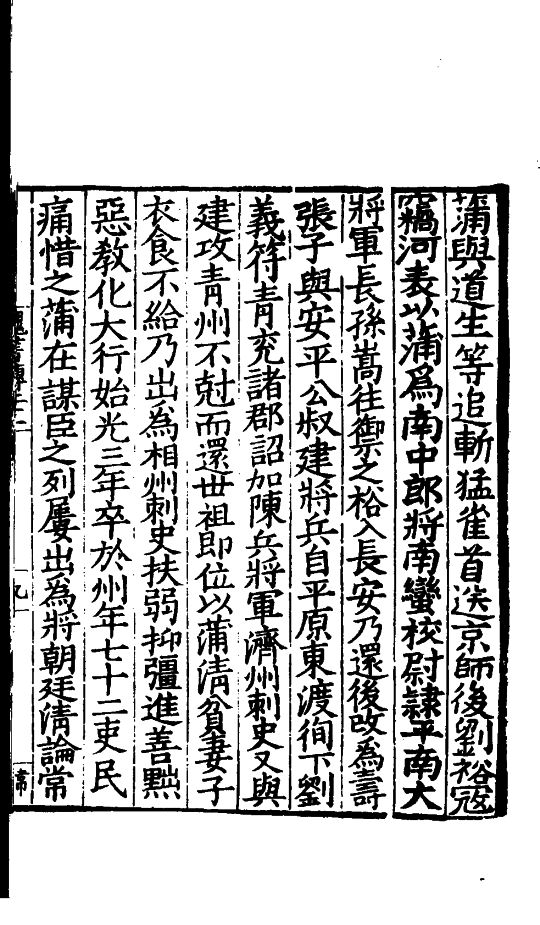 蒲與道生等追斬猛雀首送京師後劉裕寇
竊河表以蒲爲南中郎將南蠻校尉隷平南大
將軍長孫嵩往禦之裕入長安乃還後改為壽
張子與安平公叔建將兵自平原東渡徇下劉
義符青兖諸郡詔加陳兵將軍濟州刺史又與
建攻青州不尅而還世祖即位以蒲清貧妻子
衣食不給乃出為相州刺史扶弱抑彊進善黜
惡敎化大行始光三年卒於州年七十二吏民
痛惜之蒲在謀臣之列屢出為將朝廷清論常
魏書傳十二
九